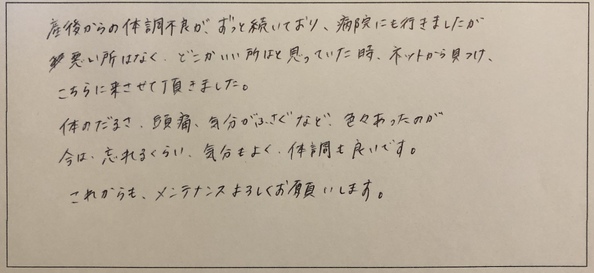 産後からの体調不良が、ずっと続いており、病院にも行きましたが
悪い所はなく、どこかいい所はと思っていた時、ネットから見つけ、
こちらに来させて頂きました。
体のだるさ、頭痛、気分がふさぐなど、色々あったのが
今は、忘れるくらい、気分もよく、体調も良いです。
これからも、メンテナンスよろしくお願いします。